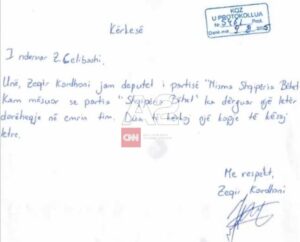 Kërkesë
KQZ
U PROTOKOLLUA
I nderuar Z. Celibashi,
Unë, Zeqir Kardhoni jam deputet i partisë "Nisma Shqipëria Bëhet
Kam mësuar se partia "Shqipëria Bëhet" ka dërguar një letër
dorëheqje në emrin tim. Dua të kërkoj një kopje të kësaj
letre.
CNN
Me respekt,
Zeqir Kardhoni